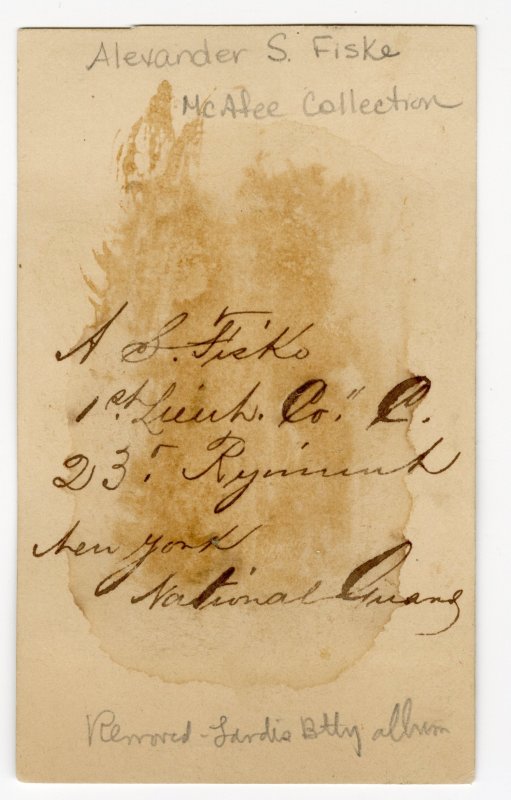 Alexander S. Fiske
McAfee Collection
A S. Fiske
1st Lieut. Co." C.
23r. Regiment
New York
National Guard
Removed - Sardis Btty album